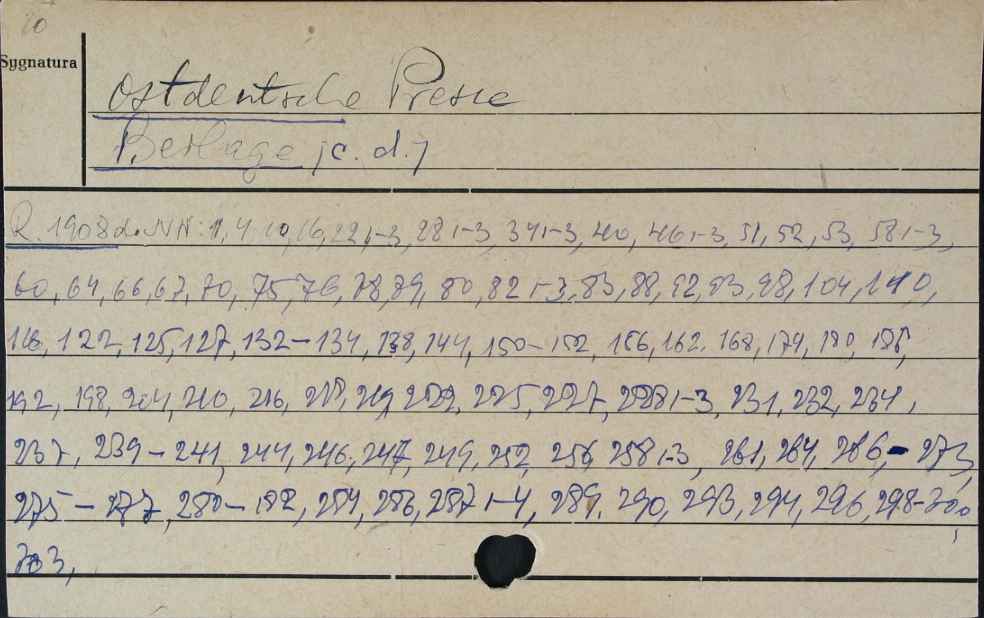 10
Sygnatura
Ostdeutsche Presse
Beilage /c. d./
R. 1908 d. NN: 1, 4, 10, 16, 22, 1-3, 28, 1-3, 34, 1-3, 40, 46, 1-3, 51, 52, 53, 58, 1-3,
60, 64, 66, 67, 70, 75, 76, 78, 79, 80, 82, 1-3, 83, 88, 92, 93, 98, 104, 110,
116, 122, 125, 127, 132-134, 138, 144, 150-152, 156, 162, 168, 174, 180, 186,
192, 198, 204, 210, 216, 218, 219, 222, 225, 227, 228, 1-3, 231, 232, 234,
237, 239-241, 244, 246, 247, 249, 252, 256, 258, 1-3, 261, 264, 266-273,
275-277, 280-282, 284, 286, 287, 1-4, 289, 290, 293, 294, 296, 298-300,
303,